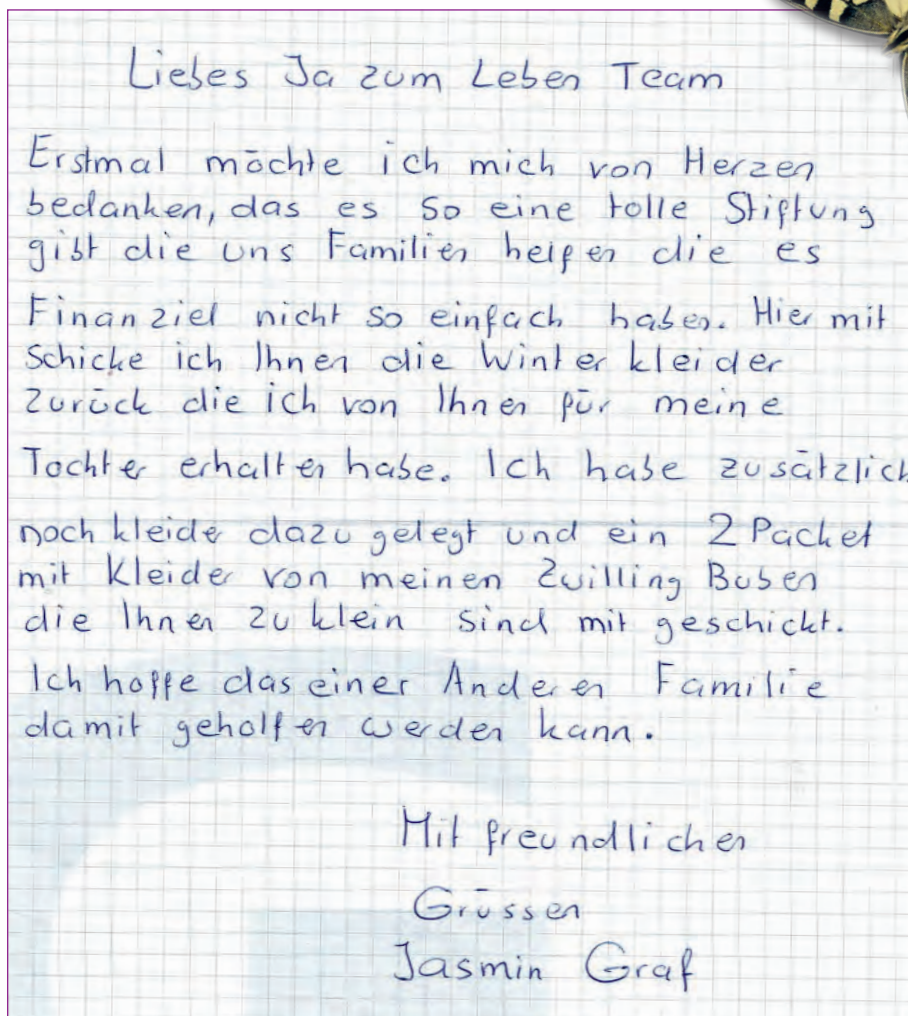 Liebes Ja zum Leben Team
Erstmal möchte ich mich von Herzen
bedanken, das es so eine tolle Stiftung
gibt die uns Familien helfen die es
Finanziel nicht so einfach haben. Hier mit
schicke ich Ihnen die Winter kleider
zurück die ich von Ihnen für meine
Tochter erhalten habe. Ich habe zusätzlich
noch kleider dazu gelegt und ein 2 Packet
mit Kleider von meinen Zwilling Buben
die Ihnen zu klein sind mit geschickt.
Ich hoffe das einer Anderen Familie
damit geholfen werden kann.
Mit freundlichen
Grüssen
Jasmin Graf